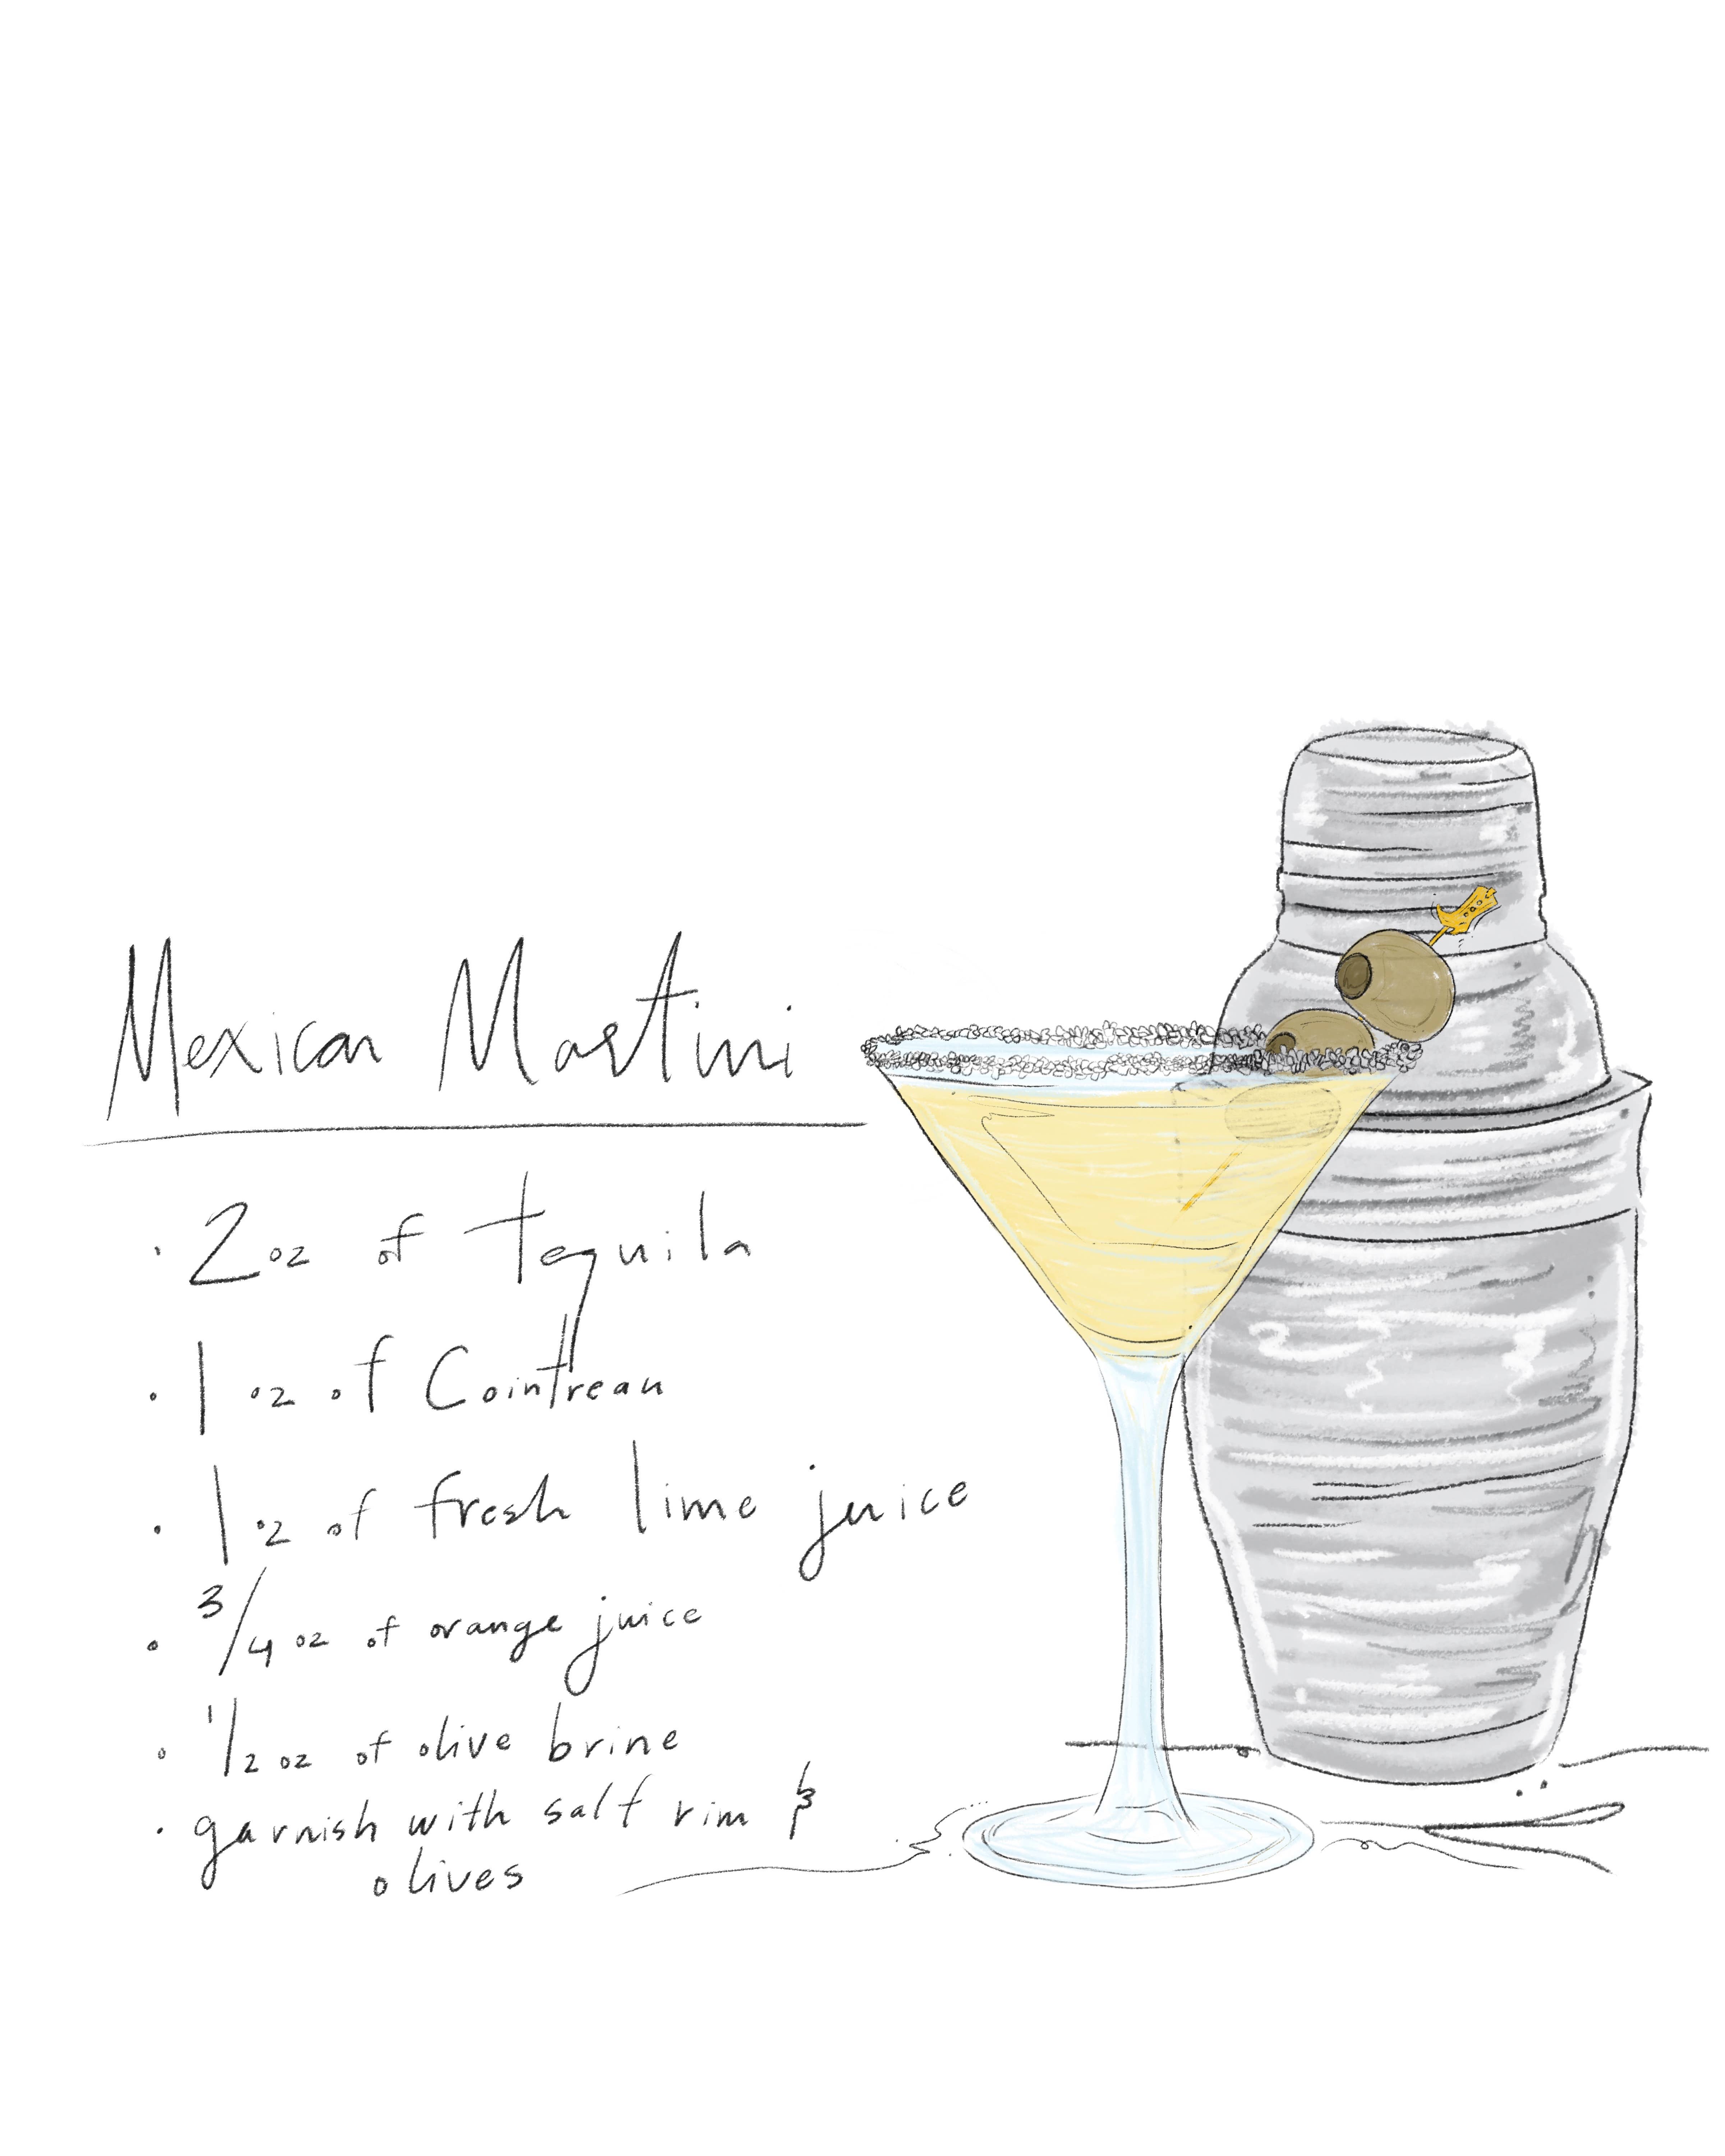 Mexican Martini
· 2 oz of tequila
· 1 oz of Cointreau
· 1 oz of fresh lime juice
· 3/4 oz of orange juice
· 1/2 oz of olive brine
· garnish with salt rim &
olives